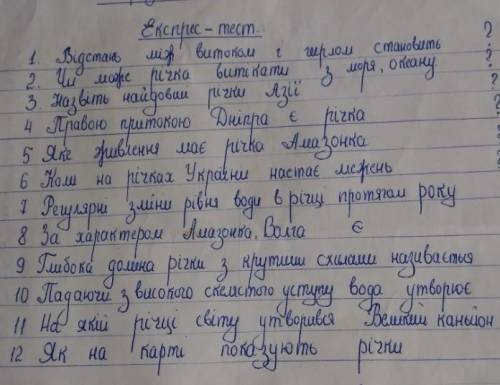 Експрес - тест.
1. Відстань між витоком і гирлом становить ?
2. Чи може річка витікати з моря, океану ?
3. Назвіть найдовші річки Азії ?
4 Правою притокою Дніпра є річка
5 Яке живлення має річка Амазонка
6 Коли на річках України настає межень
7 Регулярні зміни рівня води в річці протягом року
8 За характером Амазонка, Волга є
9 Глибока долина річки з крутими схилами називається
10 Падаючи з високого скелястого уступу вода утворює
11 На якій річці світу утворився Великий каньйон
12 Як на карті показують річки